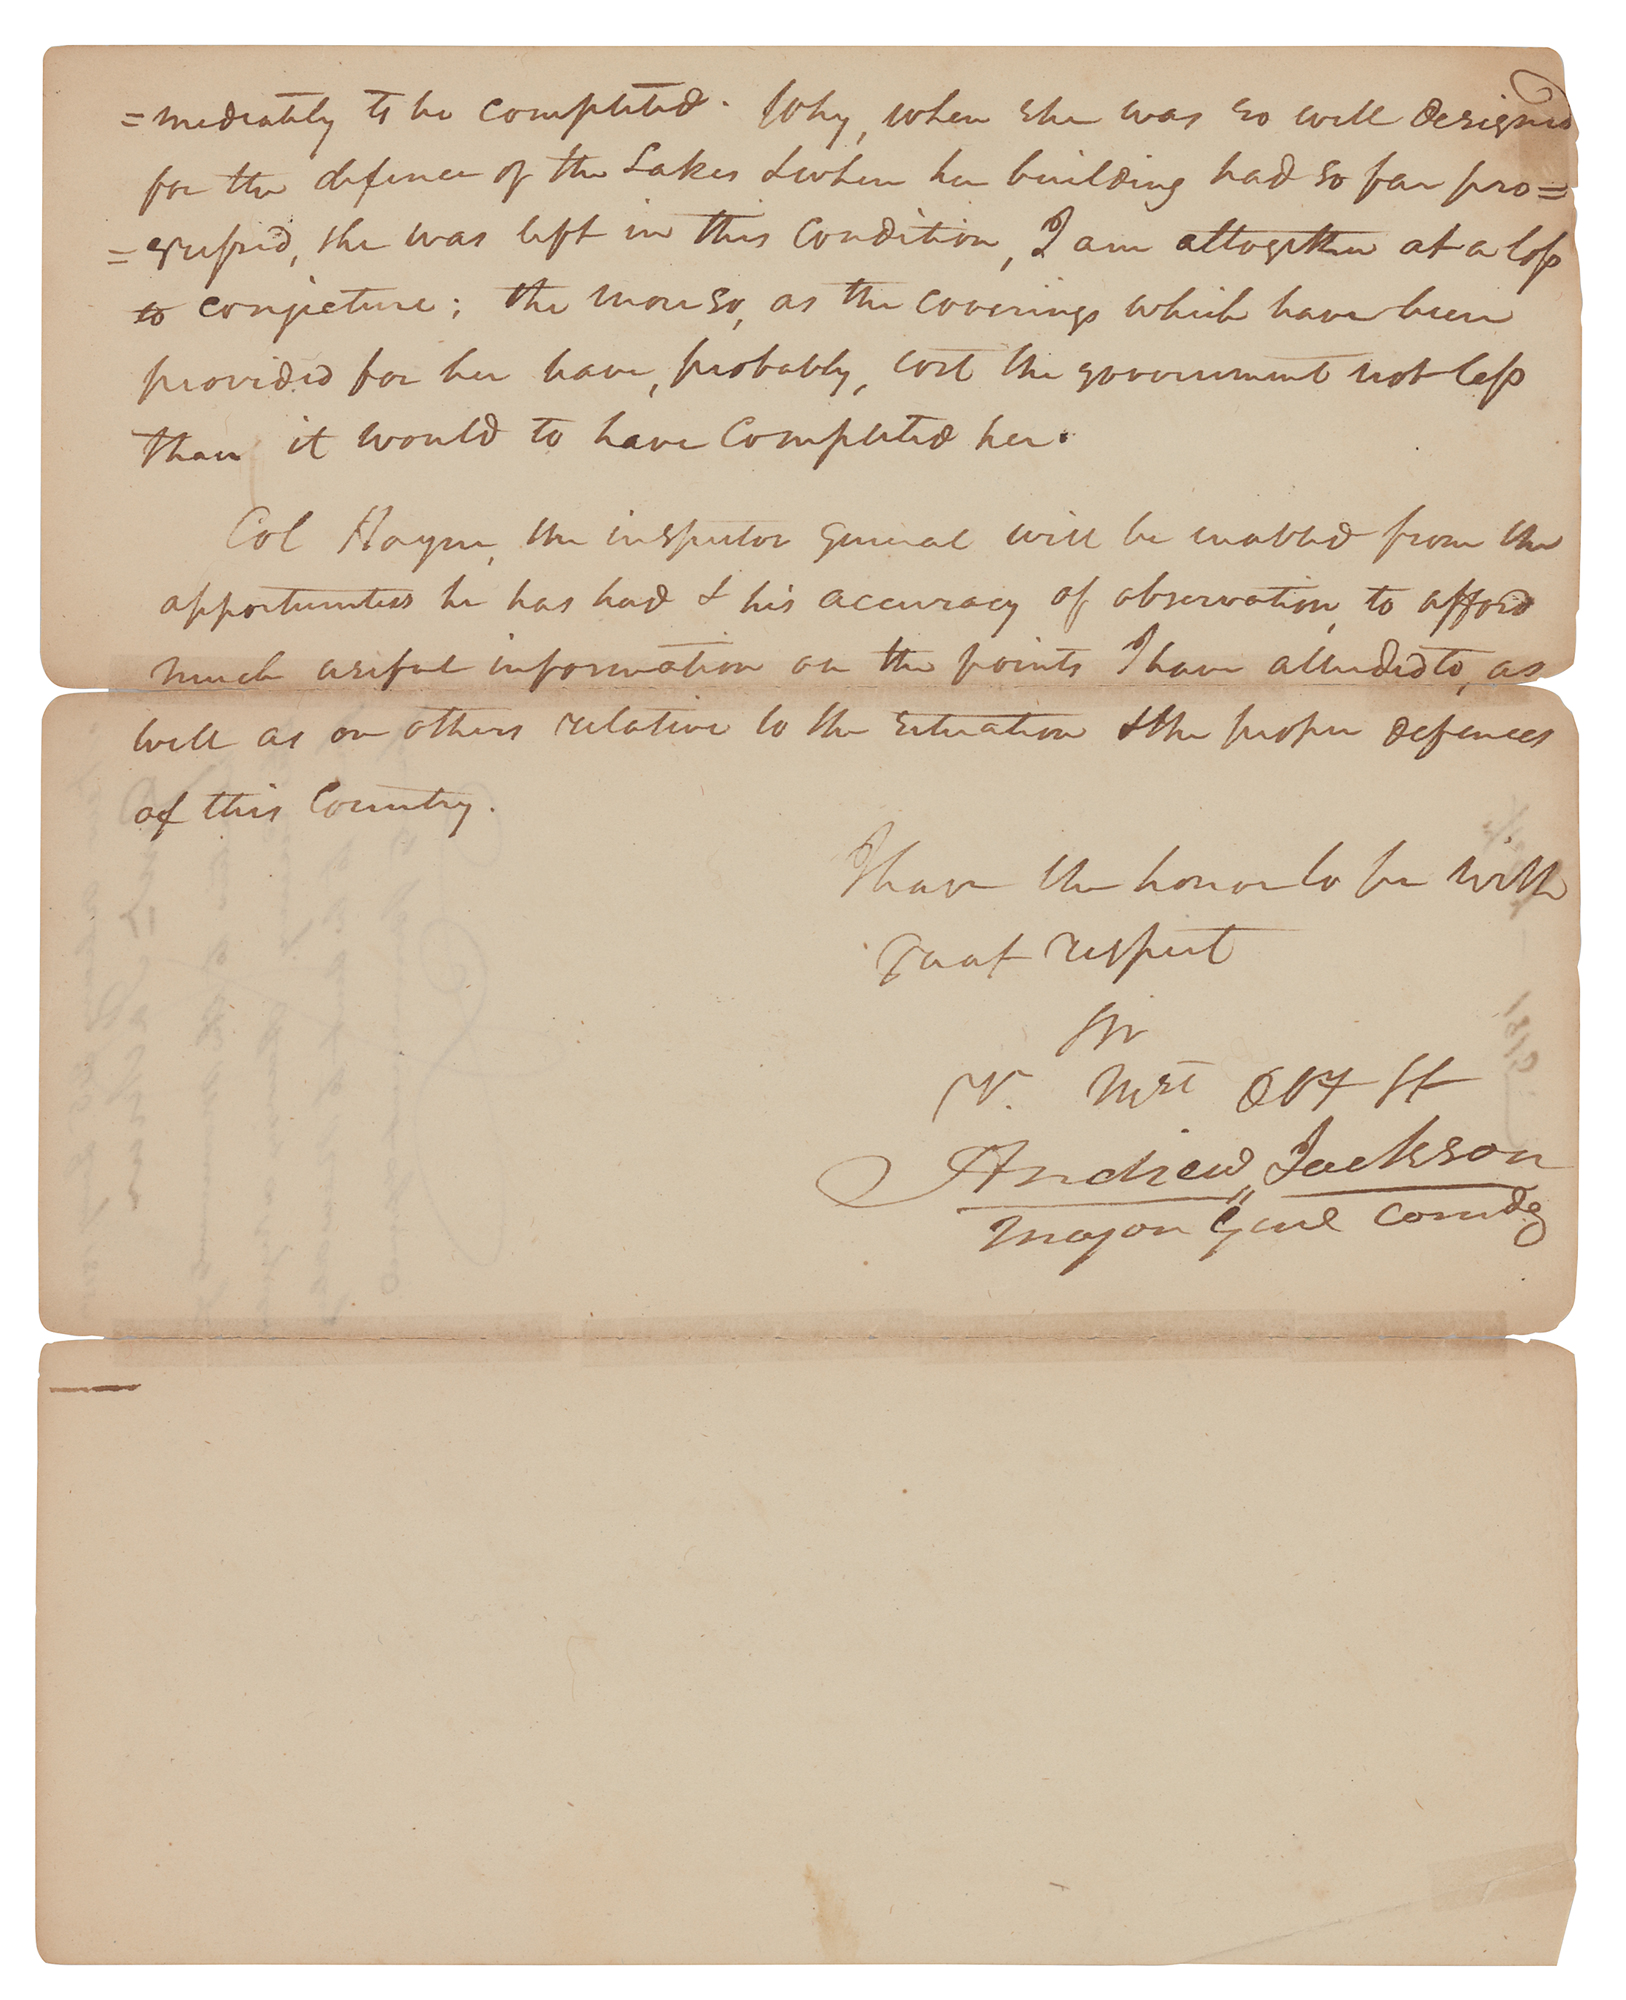 =mediately to be completed. Why, when she was so well designed
for the defence of the Lakes & when her building had so far pro=
=gressed, she was left in this Condition, I am altogether at a loss
to conjecture; the more so, as the coverings which have been
provided for her have, probably, cost the government not less
than it would to have Completed her.
Col Hayne, the inspector general will be enabled from the
opportunities he has had & his accuracy of observation, to afford
much useful information on the points I have alluded to, as
well as on others relative to the situation & the proper defences
of this Country.
I have the honor to be with
great respect
Sir
Yr. Mst Obt St
Andrew Jackson
Major Genl Comdg